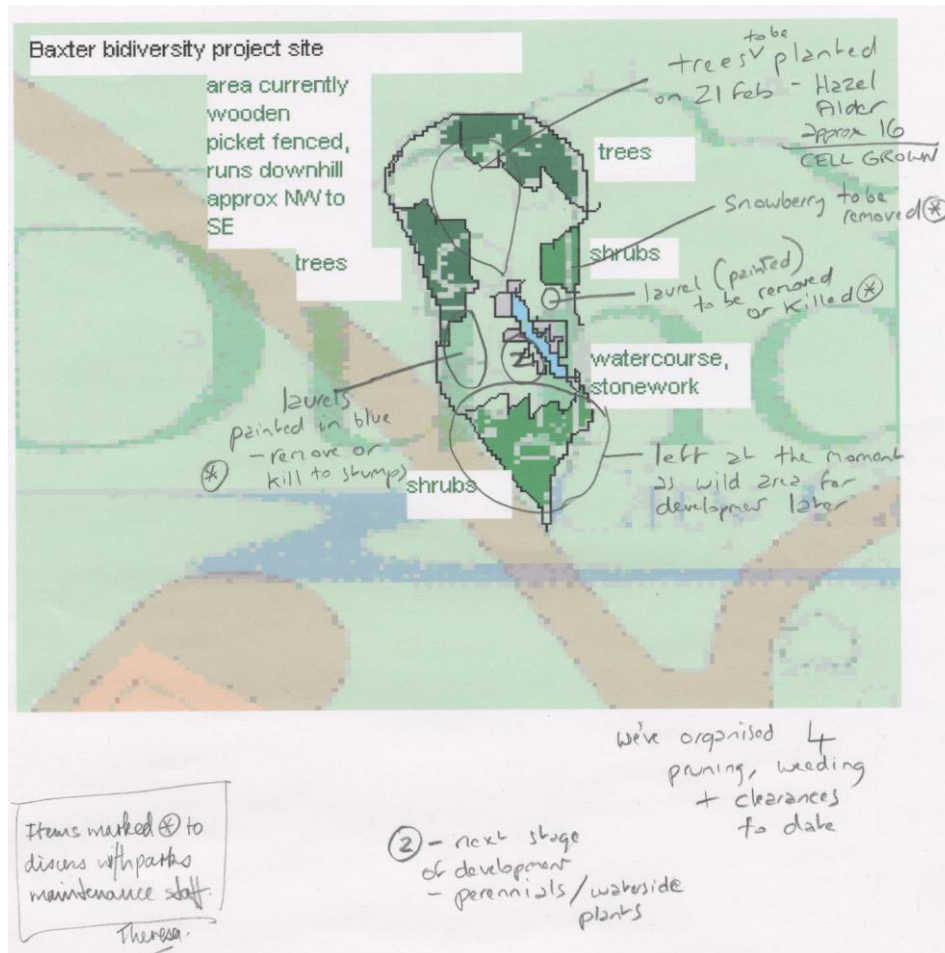 Baxter bidiversity project site
area currently
wooden
picket fenced,
runs downhill
approx NW to
SE
to be
trees planted
on 21 Feb - Hazel
Alder
approx 16
CELL GROWN
trees
Snowberry to be
removed *
shrubs
trees
laurel (painted)
to be removed
or killed *
2
watercourse,
stonework
laurels
painted in blue
- remove or
kill to stumps
*
shrubs
left at the moment
as wild area for
development later
we've organised 4
pruning, weeding
+ clearances
to date
Items marked * to
discuss with parks
maintenance staff.
Theresa.
2 - next stage
of development
- perennials/waterside
plants